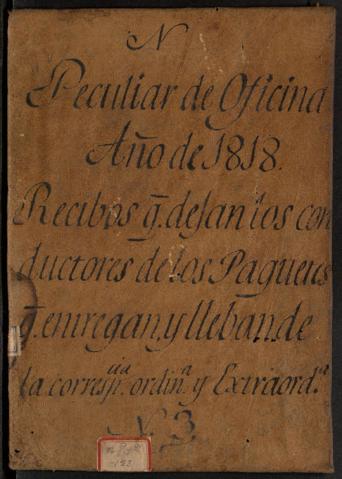 N
Peculiar de Oficina
Año de 1818.
Recibos q̄. dejan los con
ductores de los Paquetes
q̄. entregan, y lleban. de
la corresp.cia ordin.a y Extraord.a
N. 3